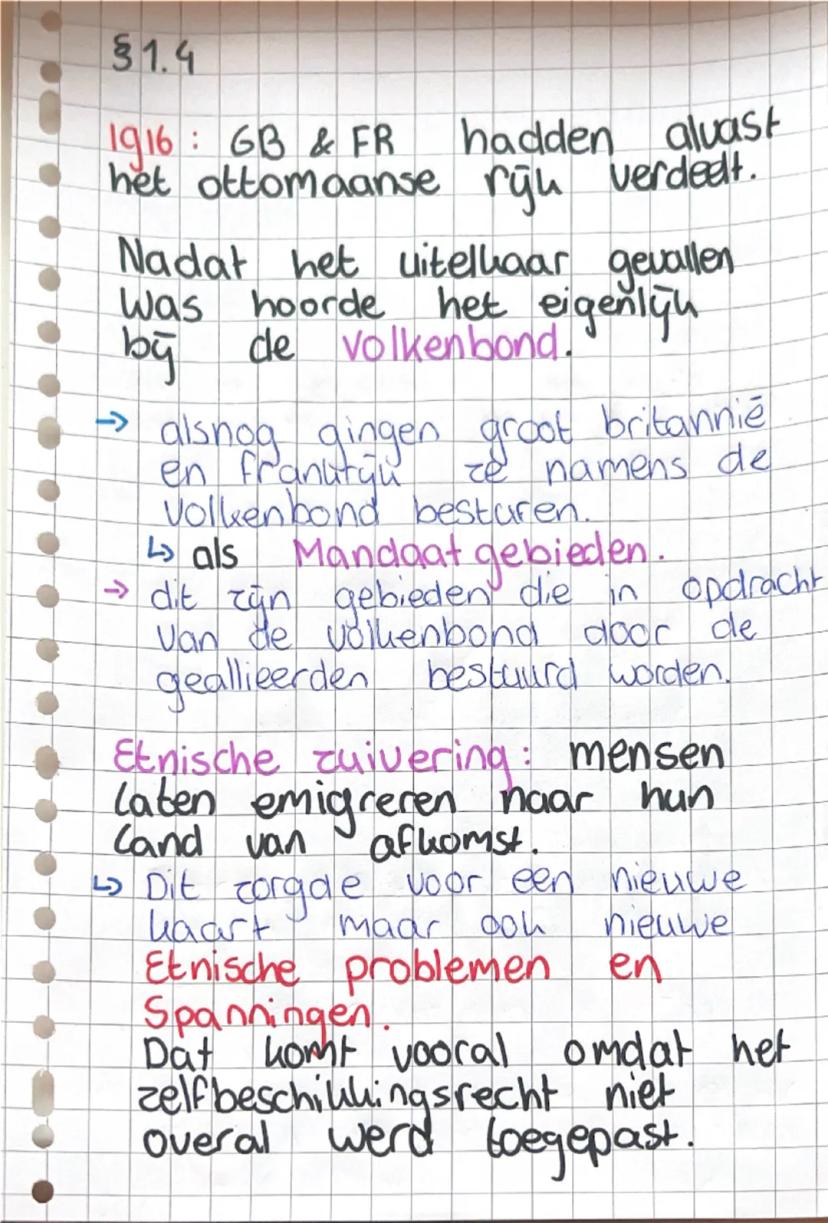 §1.4
1916: GB & FR hadden alvast
het ottomaanse rijk verdeelt.
Nadat het uitelkaar gevallen
was hoorde het eigenlijk
bij de volkenbond.
→ alsnog gingen groot britannië
en frankrijk ze namens de
volkenbond besturen.
↳ als Mandaatgebieden.
→ dit zijn gebieden die in opdracht
van de volkenbond door de
geallieerden bestuurd worden.
Etnische zuivering: mensen
laten emigreren naar hun
land van afkomst.
↳ Dit zorgde voor een nieuwe
kaart maar ook nieuwe
Etnische problemen en
Spanningen.
Dat komt vooral omdat het
zelfbeschikkingsrecht niet
overal werd toegepast.